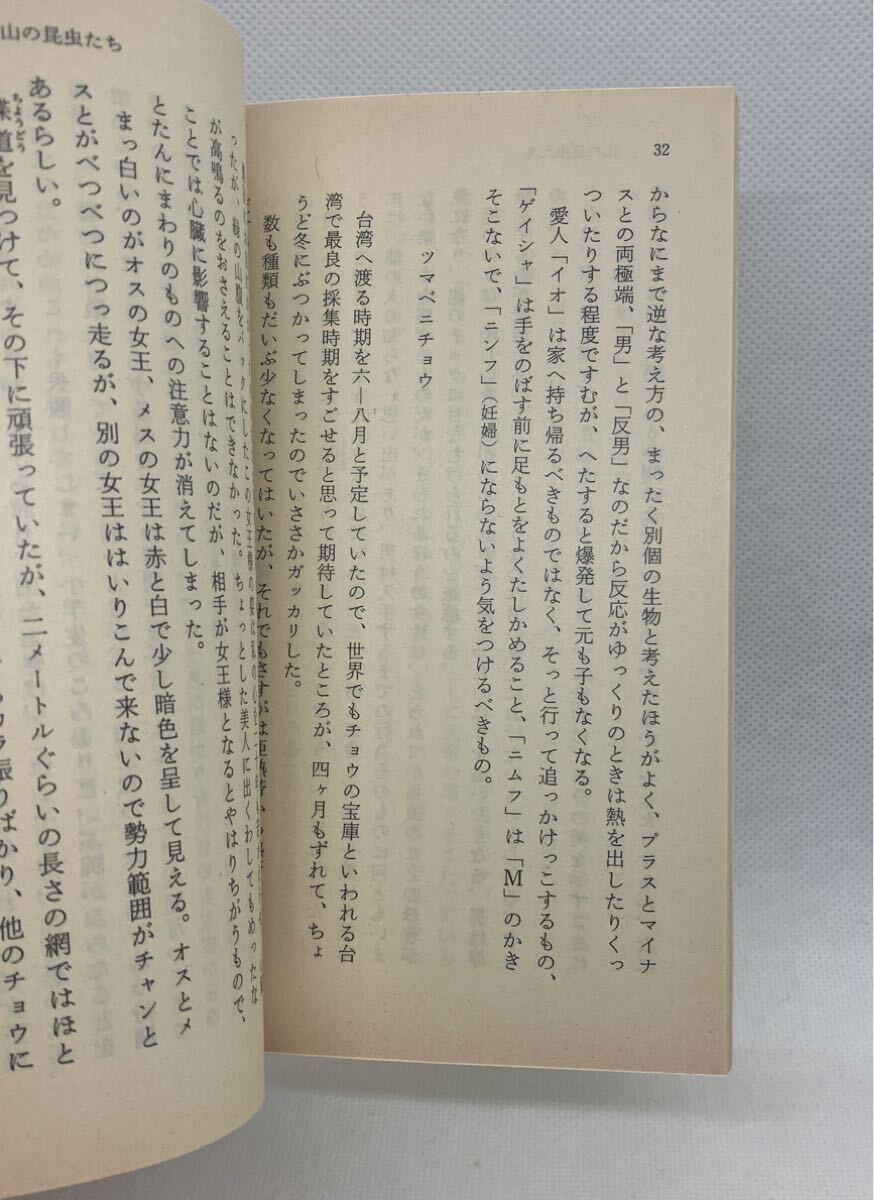 32
からなにまで逆な考え方の、まったく別個の生物と考えたほうがよく、プラスとマイナ
スとの両極端、「男」と「反男」なのだから反応がゆっくりのときは熱を出したりくっ
ついたりする程度ですむが、へたすると爆発して元も子もなくなる。
愛人「イオ」は家へ持ち帰るべきものではなく、そっと行って追っかけっこするもの、
「ゲイシャ」は手をのばす前に足もとをよくたしかめること、「ニムフ」は「M」のかき
そこないで、「ニンフ」(妊婦)にならないよう気をつけるべきもの。
ツマベニチョウ
台湾へ渡る時期を六―八月と予定していたので、世界でもチョウの宝庫といわれる台
湾で最良の採集時期をすごせると思って期待していたところが、四ヶ月もずれて、ちょ
うど冬にぶつかってしまったのでいささかガッカリした。
数も種類もだいぶ少なくなってはいたが、それでもさすがは
山の昆虫たち
ったが、緑の山腹をバックにしたこの女王様の姿は私の心を
が高鳴るのをおさえることはできなかった。ちょっとした美人に出くわしてもめったな
ことでは心臓に影響することはないのだが、相手が女王様となるとやはりちがうもので、
とたんにまわりのものへの注意力が消えてしまった。
まっ白いのがオスの女王、メスの女王は赤と白で少し暗色を呈して見える。オスとメ
スとがべつべつにつっ走るが、別の女王ははいりこんで来ないので勢力範囲がチャンと
あるらしい。
蝶道を見つけて、その下に頑張っていたが、二メートルぐらいの長さの網ではほと
振りばかり、他のチョウに